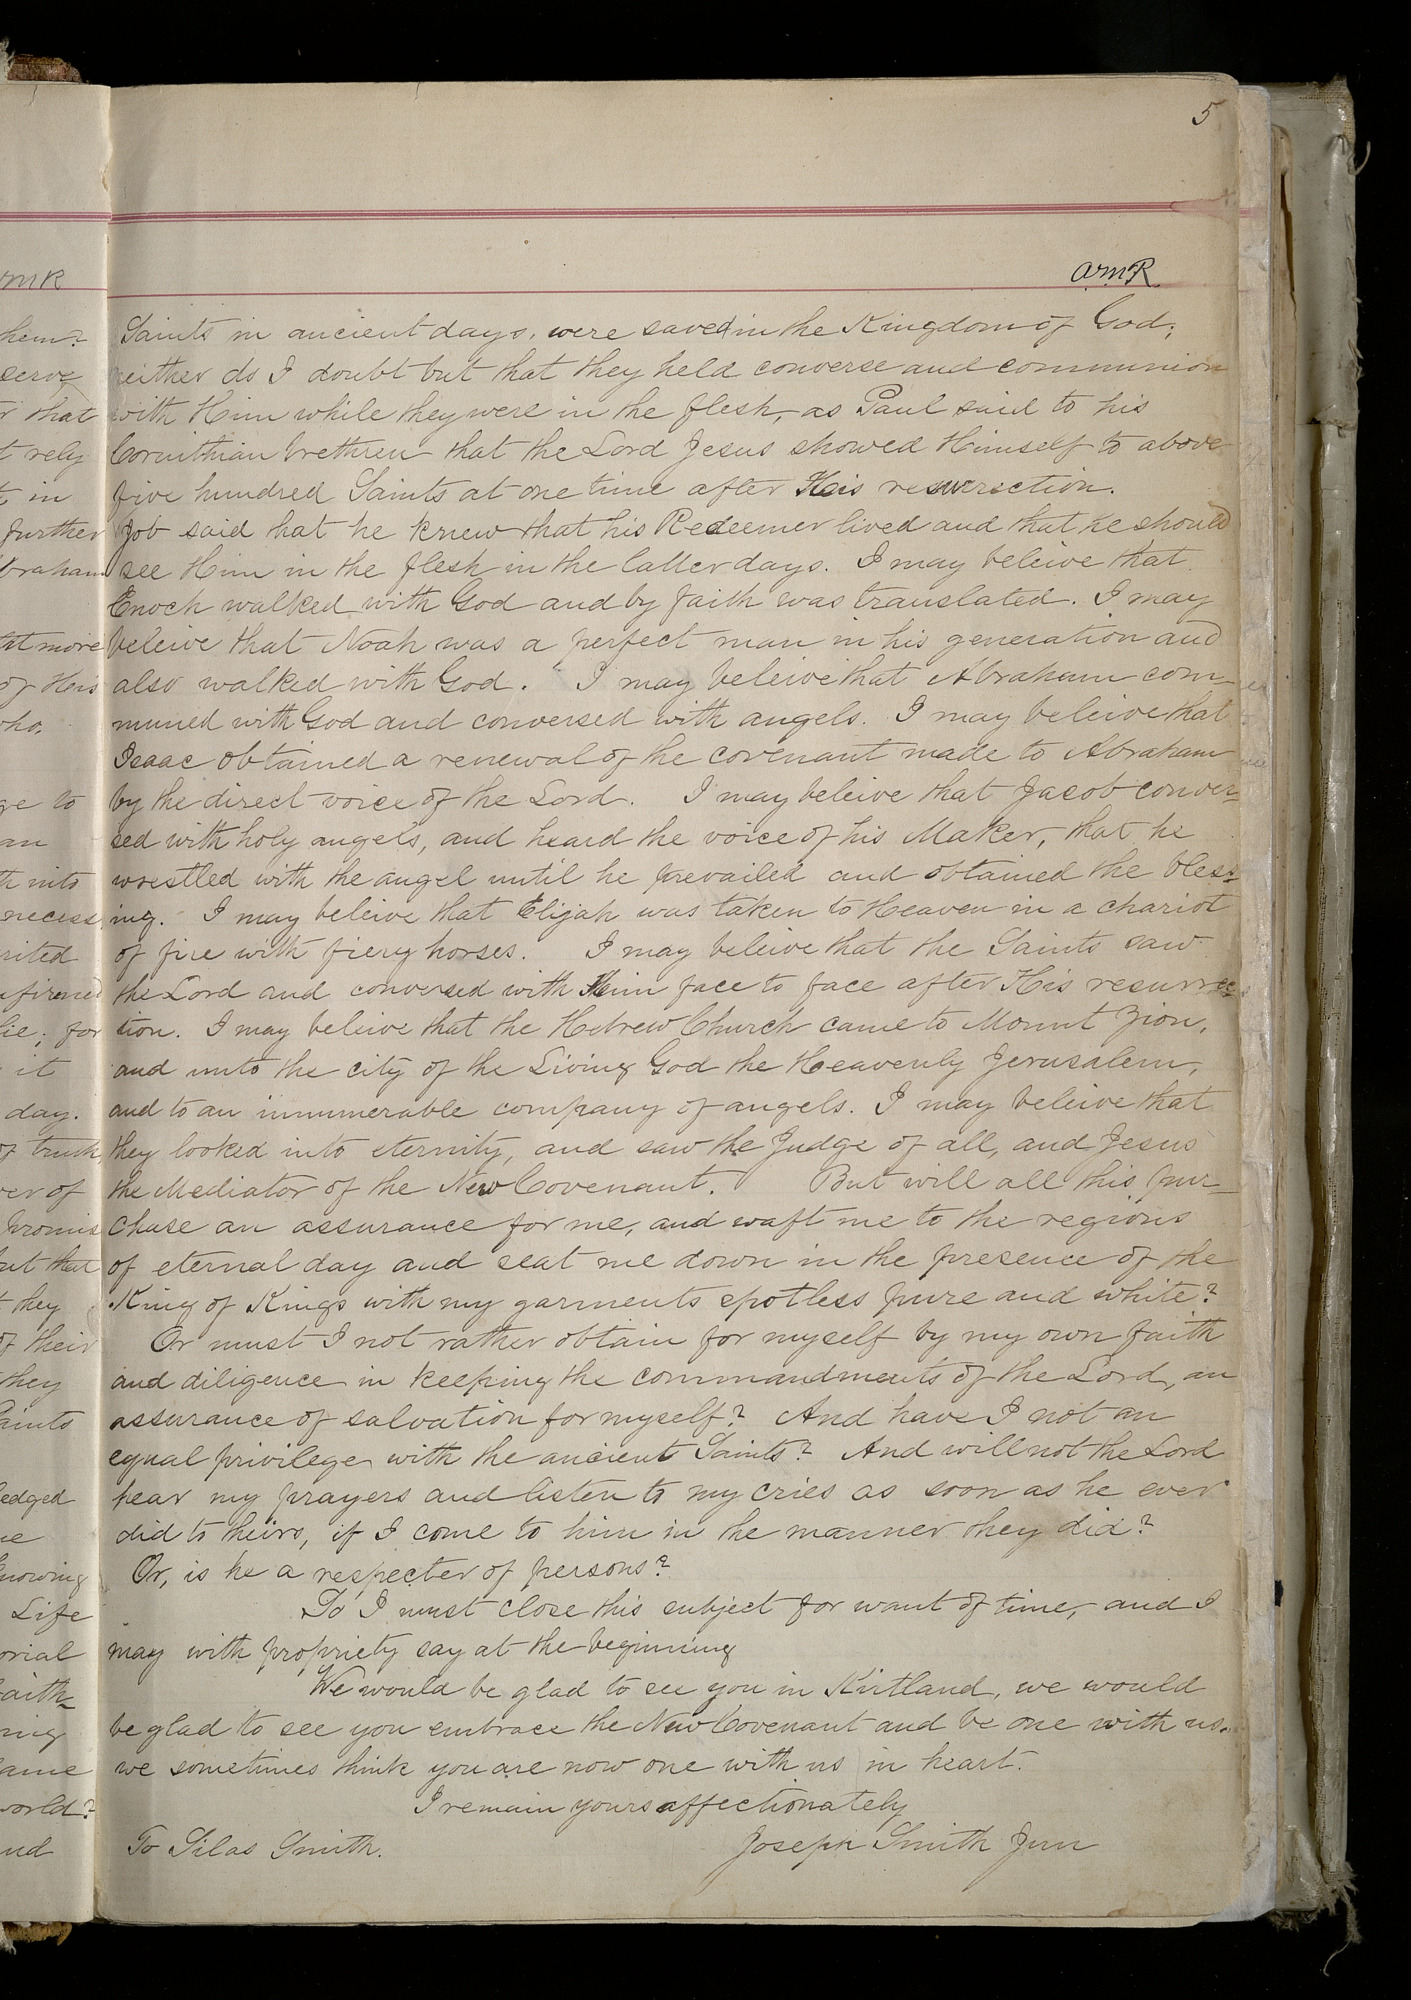 5
ArmR
Saints in ancient days, were saved in the Kingdom of God;
neither do I doubt but that they held converse and communion
with Him while they were in the flesh, as Paul said to his
Corinthian brethren that the Lord Jesus showed Himself to above
five hundred Saints at one time after His resurrection.
Job said that he knew that his Redeemer lived and that he should
see Him in the flesh in the latter days. I may beleive that
Enoch walked with God and by faith was translated. I may
beleive that Noah was a perfect man in his generation and
also walked with God. I may beleive that Abraham com-
muned with God and conversed with angels. I may beleive that
Isaac obtained a renewal of the covenant made to Abraham
by the direct voice of the Lord. I may beleive that Jacob conver=
sed with holy angels, and heard the voice of his Maker, that he
wrestled with the angel until he prevailed and obtained the bless=
ing. I may beleive that Elijah was taken to Heaven in a chariot
of fire with fiery horses. I may beleive that the Saints saw
the Lord and conversed with Him face to face after His resurrec=
tion. I may beleive that the Hebrew Church came to Mount Zion,
and unto the city of the Living God the Heavenly Jerusalem,
and to an innumerable company of angels. I may beleive that
they looked into eternity, and saw the Judge of all, and Jesus
the Mediator of the New Covenant. But will all this pur-
chase an assurance for me, and waft me to the regions
of eternal day and seat me down in the presence of the
King of Kings with my garments spotless pure and white?
Or must I not rather obtain for myself by my own faith
and diligence in keeping the commandments of the Lord, an
assurance of salvation for myself? And have I not an
equal privilege with the ancient Saints? And will not the Lord
hear my prayers and listen to my cries as soon as he ever
did to theirs, if I come to him in the manner they did?
Or, is he a respecter of persons?
To I must close this subject for want of time, and I
may with propriety say at the beginning
We would be glad to see you in Kirtland, we would
be glad to see you embrace the New Covenant and be one with us.
we sometimes think you are now one with us in heart.
I remain yours affectionately
To Silas Smith. Joseph Smith Jun